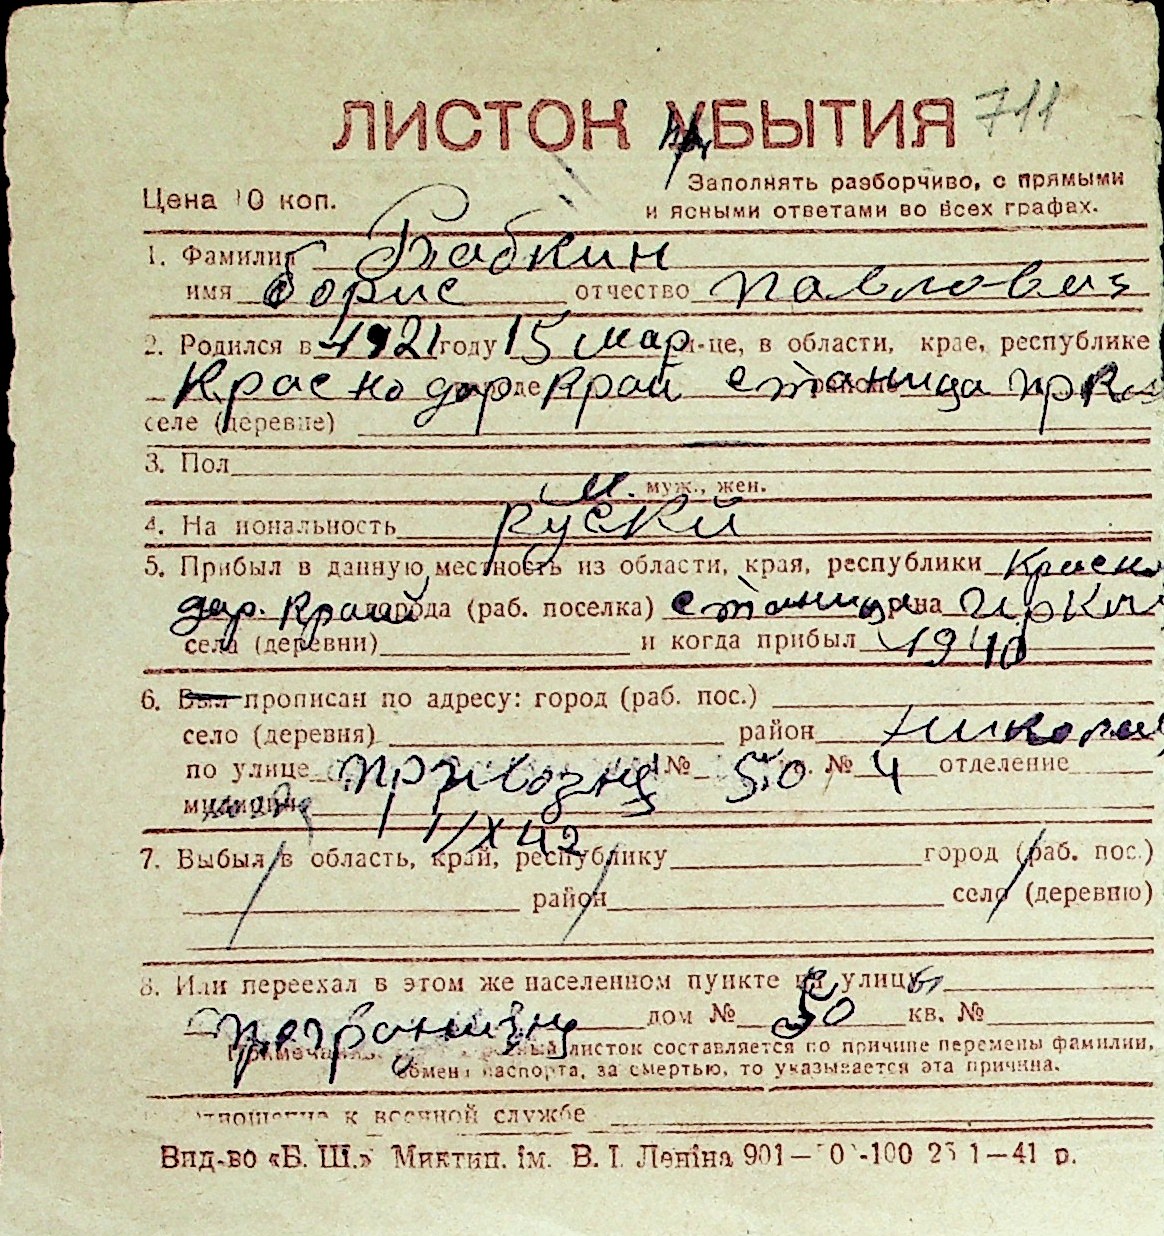 ЛИСТОК УБЫТИЯ 711
Цена 10 коп.
Заполнять разборчиво, с прямыми
и ясными ответами во всех графах.
1. Фамилия Рабкин
имя Борис отчество Павлович
2. Родился в 1921 году 15 мар м-це, в области, крае, республике
Краснодар Край станица
селе (деревне)
3. Пол
м. муж., жен.
4. Национальность руский
5. Прибыл в данную местность из области, края, республики Красно
дар. Край города (раб. поселка) станица
села (деревни) и когда прибыл 1940
6. Был прописан по адресу: город (раб. пос.)
село (деревня) район Николаев
по улице № 50 № 4 отделение
милиции
1/IX 42
7. Выбыл в область, край, республику город (раб. пос.)
район село (деревню)
8. Или переехал в этом же населенном пункте на улицу
дом № 50 кв. №
Примечание. листок составляется по причине перемены фамилии,
обмена паспорта, за смертью, то указывается эта причина.
Отношение к военной службе
Вид-во «Б. Ш.» Миктип. ім. В. І. Леніна 901— -100 1—41 р.